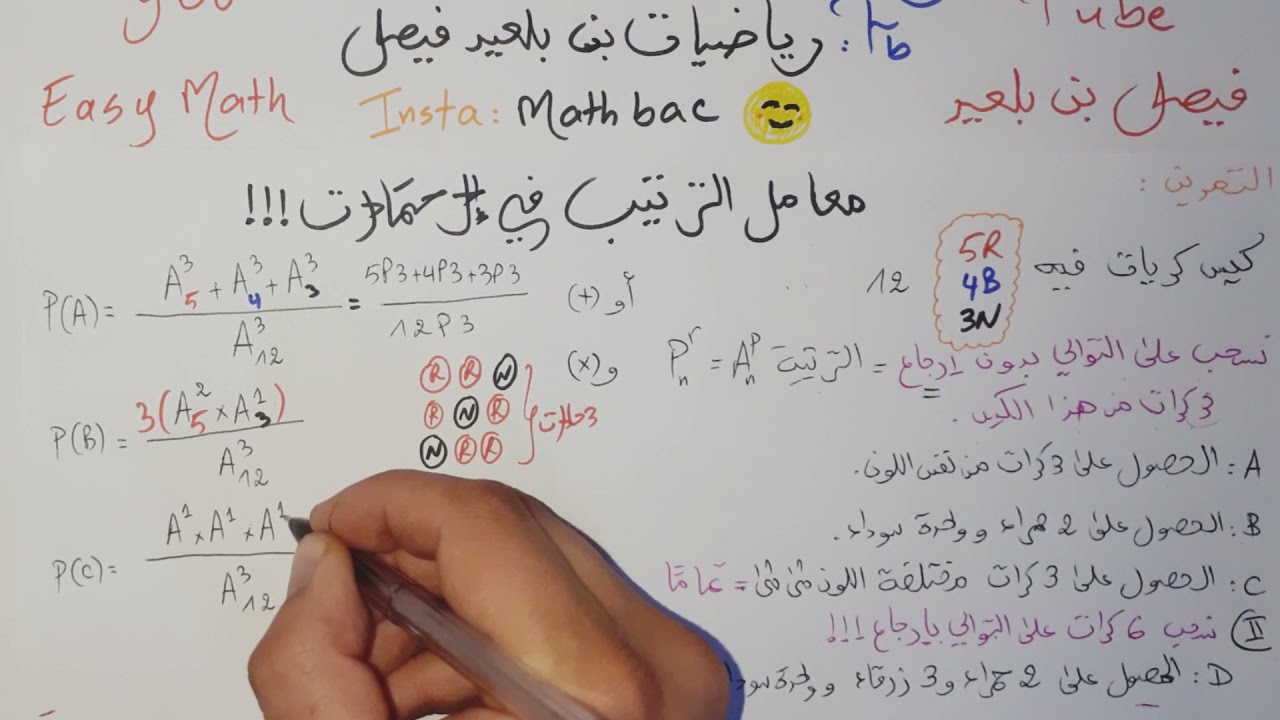 you Tube
رياضيات بن بلعيد فيصل : Fb
Easy Math Insta: Mathbac فيصل بن بلعيد
معامل الترتيب في الإحتمالات !!!
التمرين :
كيس كريات فيه 5R 4B 3N 12
نسحب على التوالي بدون إرجاع = الترتيب
3 كرات من هذا الكيس .
P_n^r = A_n^p
أو (+)
و (x)
A : الحصول على 3 كرات من نفس اللون.
B : الحصول على 2 حمراء و واحدة سوداء.
C : الحصول على 3 كرات مختلفة اللون مثنى مثنى = تماما
II نسحب 6 كرات على التوالي بإرجاع !!!
D : الحصول على 2 حمراء و 3 زرقاء و واحدة سودا
P(A) = (A_5^3 + A_4^3 + A_3^3) / A_12^3 = (5P3+4P3+3P3) / 12P3
P(B) = 3(A_5^2 × A_3^1) / A_12^3
R R N
R N R
N R R
3 حالات
P(C) = A^1 × A^1 × A^1 / A_12^3